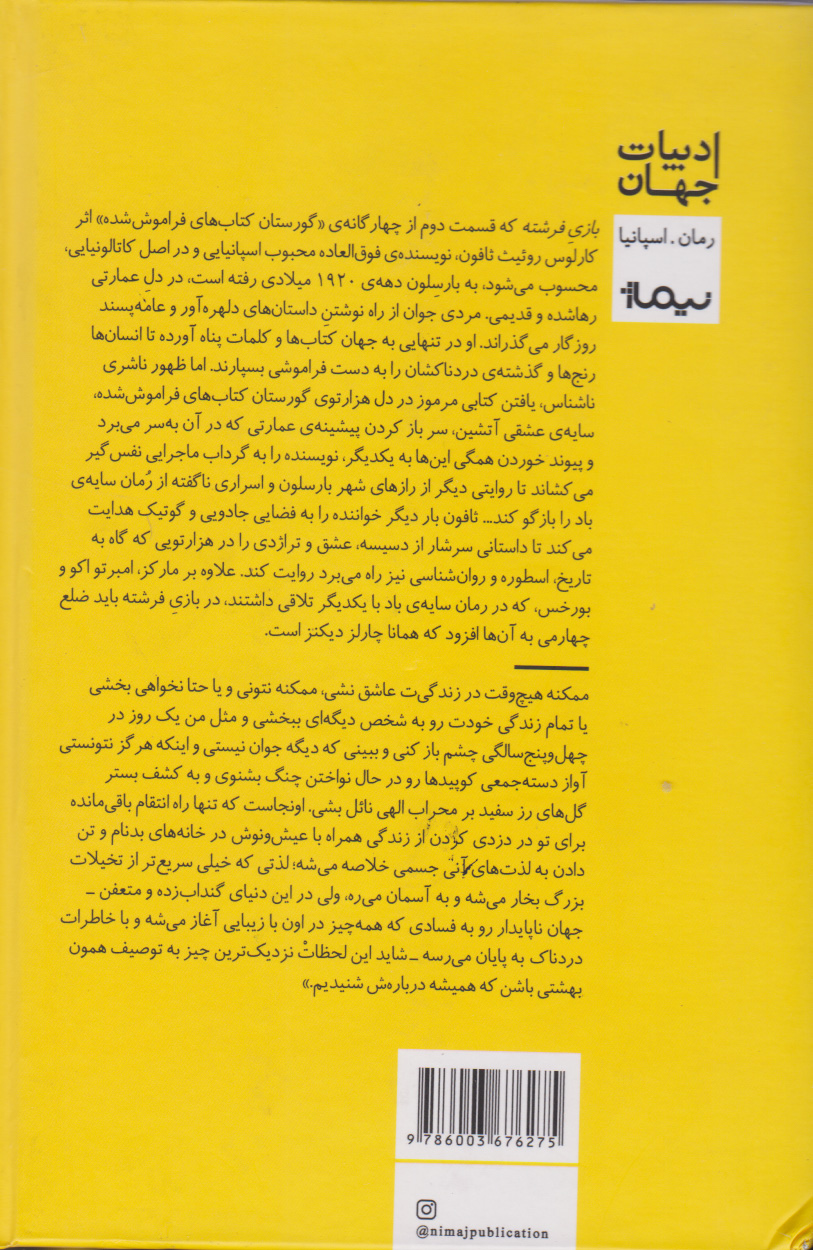 ادبیات
جهان
رمان. اسپانیا
نیماژ
بازیِ فرشته که قسمت دوم از چهارگانه‌ی «گورستان کتاب‌های فراموش‌شده» اثر
کارلوس روئیث ثافون، نویسنده‌ی فوق‌العاده محبوب اسپانیایی و در اصل کاتالونیایی،
محسوب می‌شود، به بارسِلون دهه‌ی ۱۹۲۰ میلادی رفته است، در دلِ عمارتی
رهاشده و قدیمی. مردی جوان از راه نوشتنِ داستان‌های دلهره‌آور و عامه‌پسند
روزگار می‌گذراند. او در تنهایی به جهان کتاب‌ها و کلمات پناه آورده تا انسان‌ها
رنج‌ها و گذشته‌ی دردناکشان را به دست فراموشی بسپارند. اما ظهور ناشری
ناشناس، یافتن کتابی مرموز در دل هزارتوی گورستان کتاب‌های فراموش‌شده،
سایه‌ی عشقی آتشین، سر باز کردن پیشینه‌ی عمارتی که در آن به‌سر می‌برد
و پیوند خوردن همگی این‌ها به یکدیگر، نویسنده را به گرداب ماجرایی نفس‌گیر
می‌کشاند تا روایتی دیگر از رازهای شهر بارسلون و اسراری ناگفته از رُمان سایه‌ی
باد را بازگو کند... ثافون بار دیگر خواننده را به فضایی جادویی و گوتیک هدایت
می‌کند تا داستانی سرشار از دسیسه، عشق و تراژدی را در هزارتویی که گاه به
تاریخ، اسطوره و روان‌شناسی نیز راه می‌برد روایت کند. علاوه بر مارکز، امبرتو اکو و
بورخس، که در رمان سایه‌ی باد با یکدیگر تلاقی داشتند، در بازیِ فرشته باید ضلع
چهارمی به آن‌ها افزود که همانا چارلز دیکنز است.
ممکنه هیچ‌وقت در زندگی‌ت عاشق نشی، ممکنه نتونی و یا حتا نخواهی بخشی
یا تمام زندگی خودت رو به شخص دیگه‌ای ببخشی و مثل من یک روز در
چهل‌وپنج‌سالگی چشم باز کنی و ببینی که دیگه جوان نیستی و اینکه هرگز نتونستی
آواز دسته‌جمعی کوپیدها رو در حال نواختن چنگ بشنوی و به کشف بستر
گل‌های رز سفید بر محراب الهی نائل بشی. اونجاست که تنها راه انتقام باقی‌مانده
برای تو در دزدی کردن از زندگی همراه با عیش‌ونوش در خانه‌های بدنام و تن
دادن به لذت‌های آنی جسمی خلاصه می‌شه؛ لذتی که خیلی سریع‌تر از تخیلات
بزرگ بخار می‌شه و به آسمان می‌ره، ولی در این دنیای گنداب‌زده و متعفن ـ
جهان ناپایدار رو به فسادی که همه‌چیز در اون با زیبایی آغاز می‌شه و با خاطرات
دردناک به پایان می‌رسه ـ شاید این لحظاتْ نزدیک‌ترین چیز به توصیف همون
بهشتی باشن که همیشه درباره‌ش شنیدیم.»
9 786003 676275
@nimajpublication